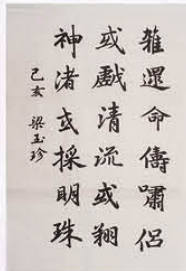 雜遝命儔嘯侶
或戲清流或翔
神渚或採明珠
己亥 梁玉珍